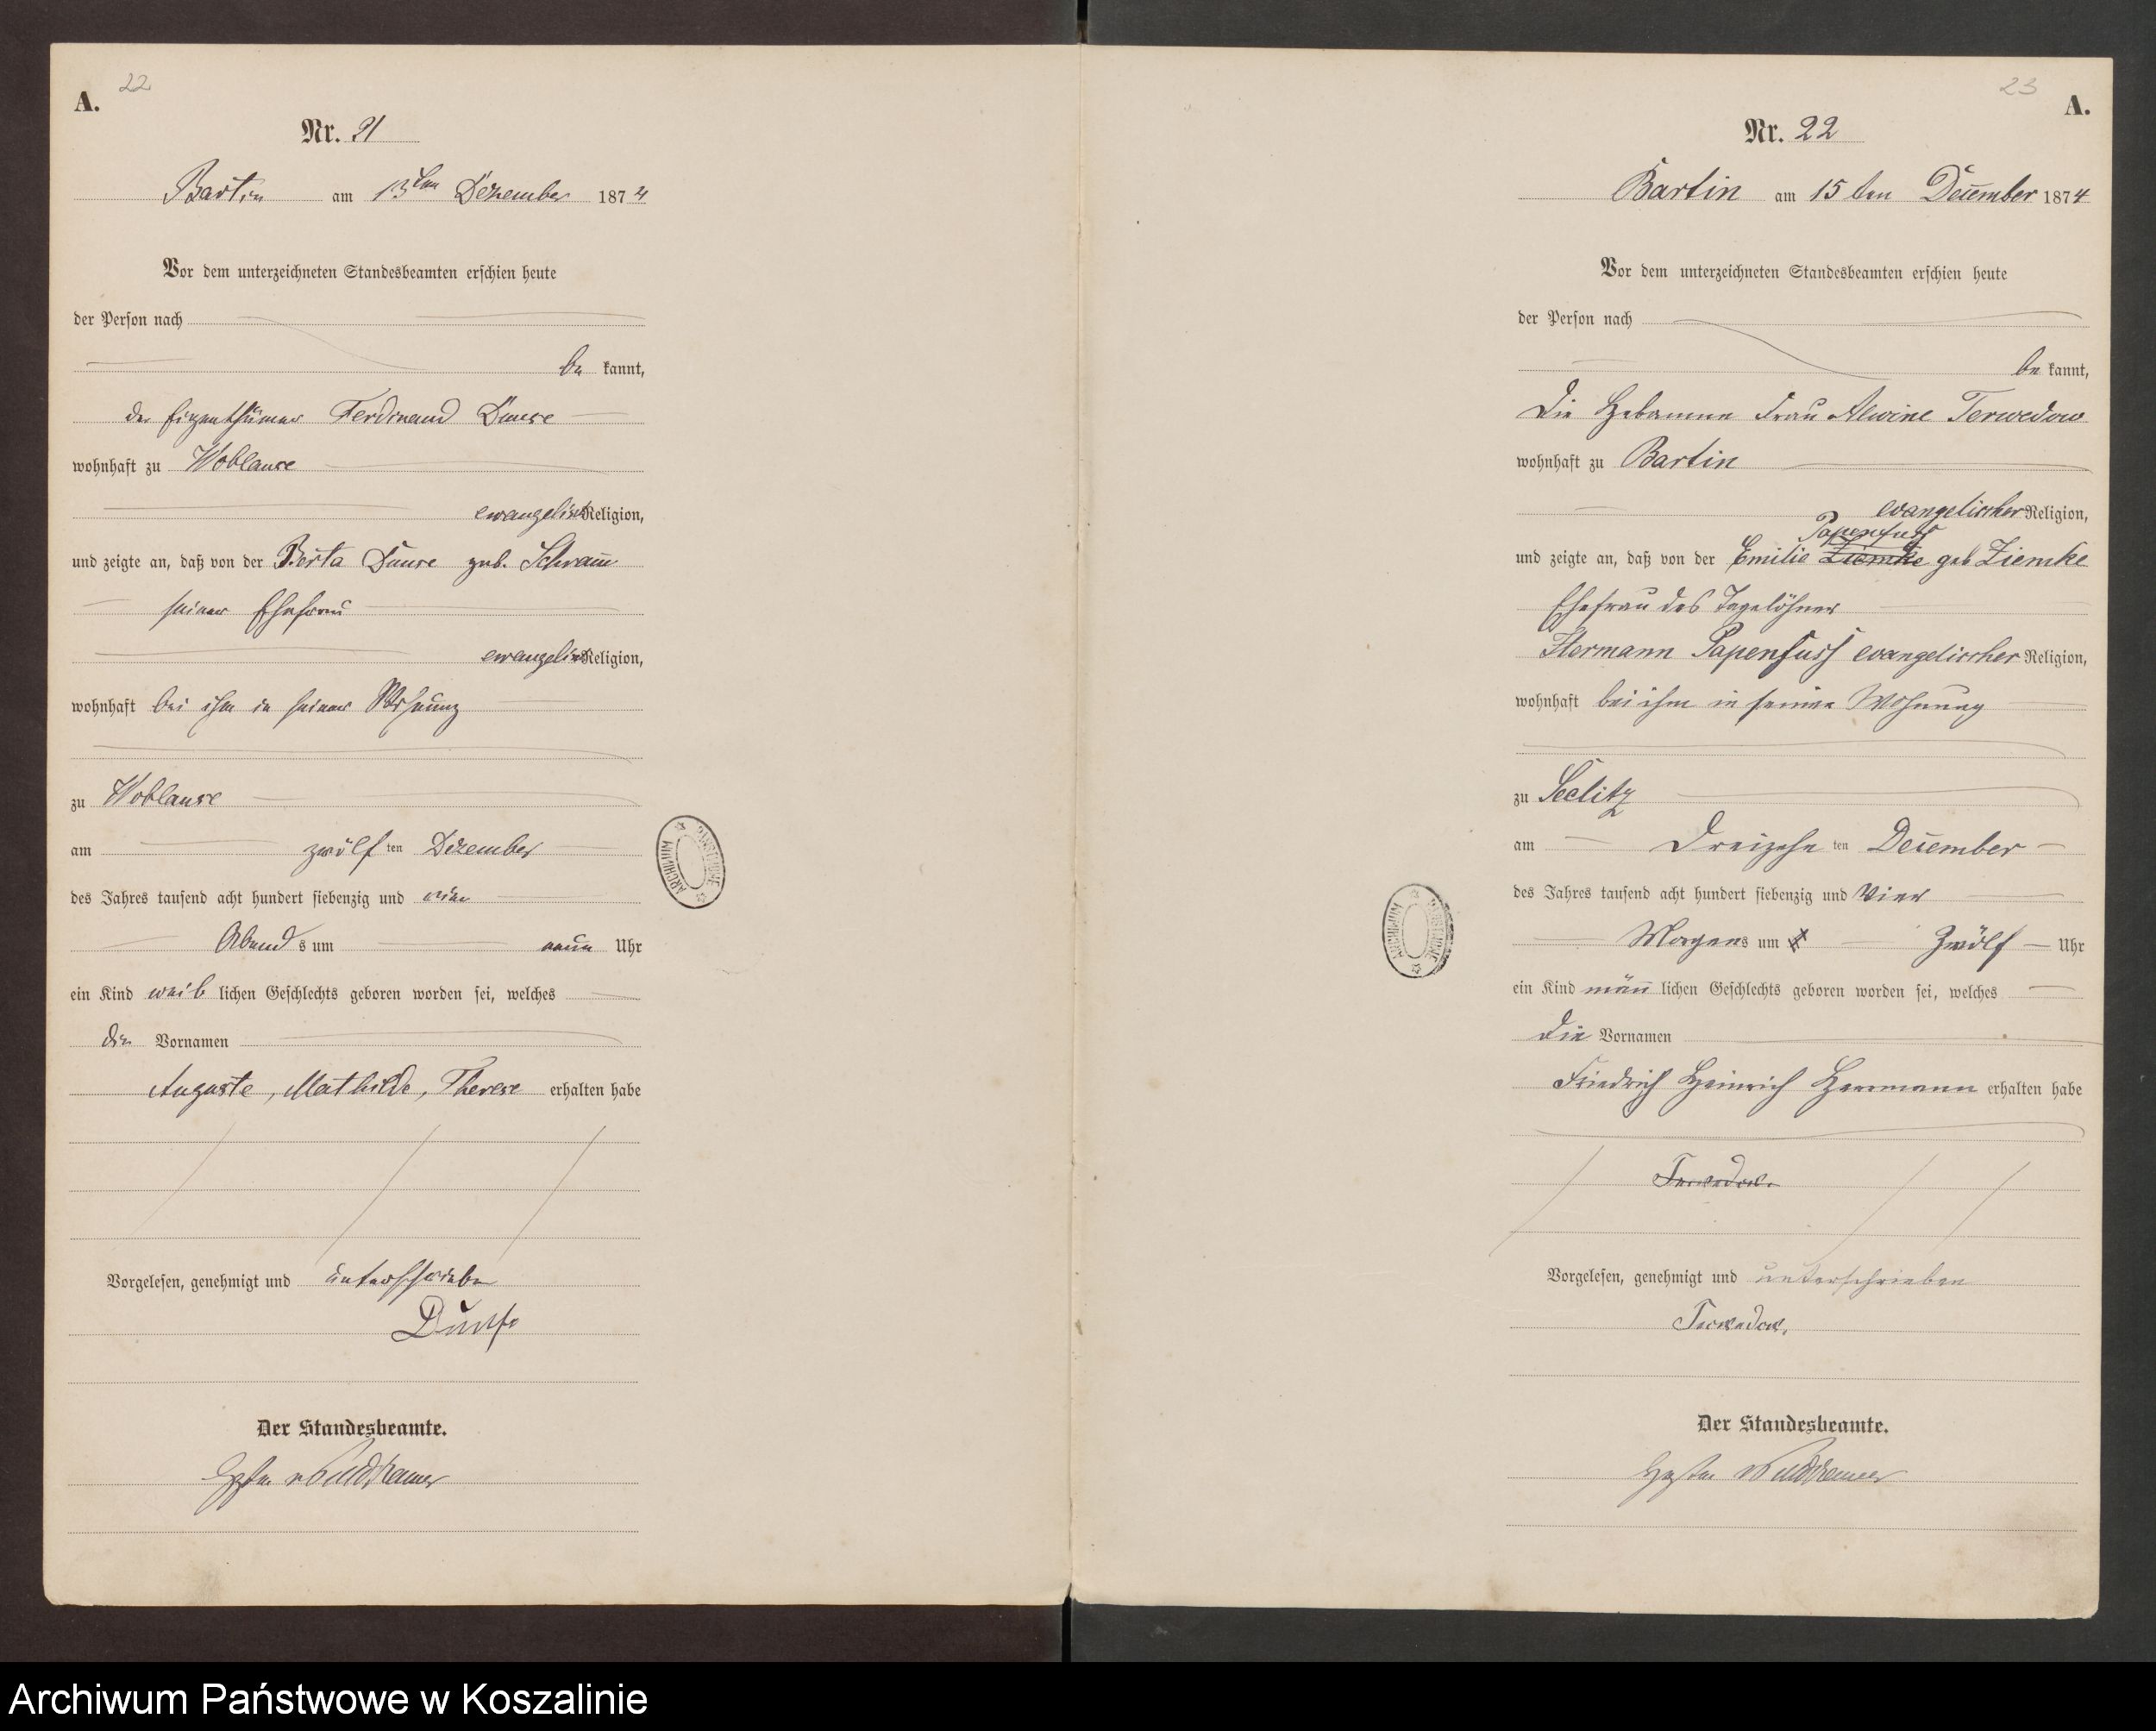 22
A.
Nr. 21
Bartin am 13ten Dezember 1874
Vor dem unterzeichneten Standesbeamten erschien heute
der Person nach
be kannt,
der Eigenthümer Ferdinand
wohnhaft zu Woblanse
evangelisch Religion,
und zeigte an, daß von der Berta geb. Schram̄
seiner Ehefrau
evangelisch Religion,
wohnhaft bei ihm in seiner Wohnung
zu Woblanse
am zwölf ten Dezember
des Jahres tausend acht hundert siebenzig und vier
Abend s um neun Uhr
ein Kind weib lichen Geschlechts geboren worden sei, welches
die Vornamen
Auguste, Mathilde, Therese erhalten habe
Vorgelesen, genehmigt und unterschrieben
Der Standesbeamte.
ARCHIWUM PAŃSTWOWE
23
A.
Nr. 22
Bartin am 15ten December 1874
Vor dem unterzeichneten Standesbeamten erschien heute
der Person nach
be kannt,
Die Hebamme Frau Alwine Terwedow
wohnhaft zu Bartin
evangelischer Religion,
Papenfuss
und zeigte an, daß von der Emilie Ziemke geb Ziemke
Ehefrau des Tagelöhner
Hermann Papenfuss evangelischer Religion,
wohnhaft bei ihm in seiner Wohnung
zu Seelitz
am Dreizehn ten December
des Jahres tausend acht hundert siebenzig und vier
Morgens um Zwölf Uhr
ein Kind män̄ lichen Geschlechts geboren worden sei, welches
die Vornamen
Friedrich Heinrich Hermann erhalten habe
Terwedow.
Vorgelesen, genehmigt und unterschrieben
Terwedow.
Der Standesbeamte.
ARCHIWUM PAŃSTWOWE
Archiwum Państwowe w Koszalinie